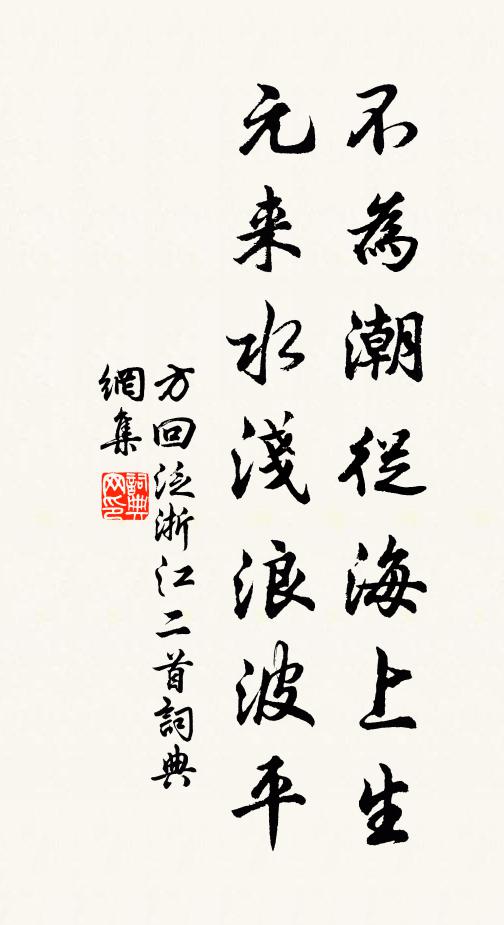 不為潮從海上生
元来水淺浪波平
方回泛浙江二首詞典
網集
詞典
网印